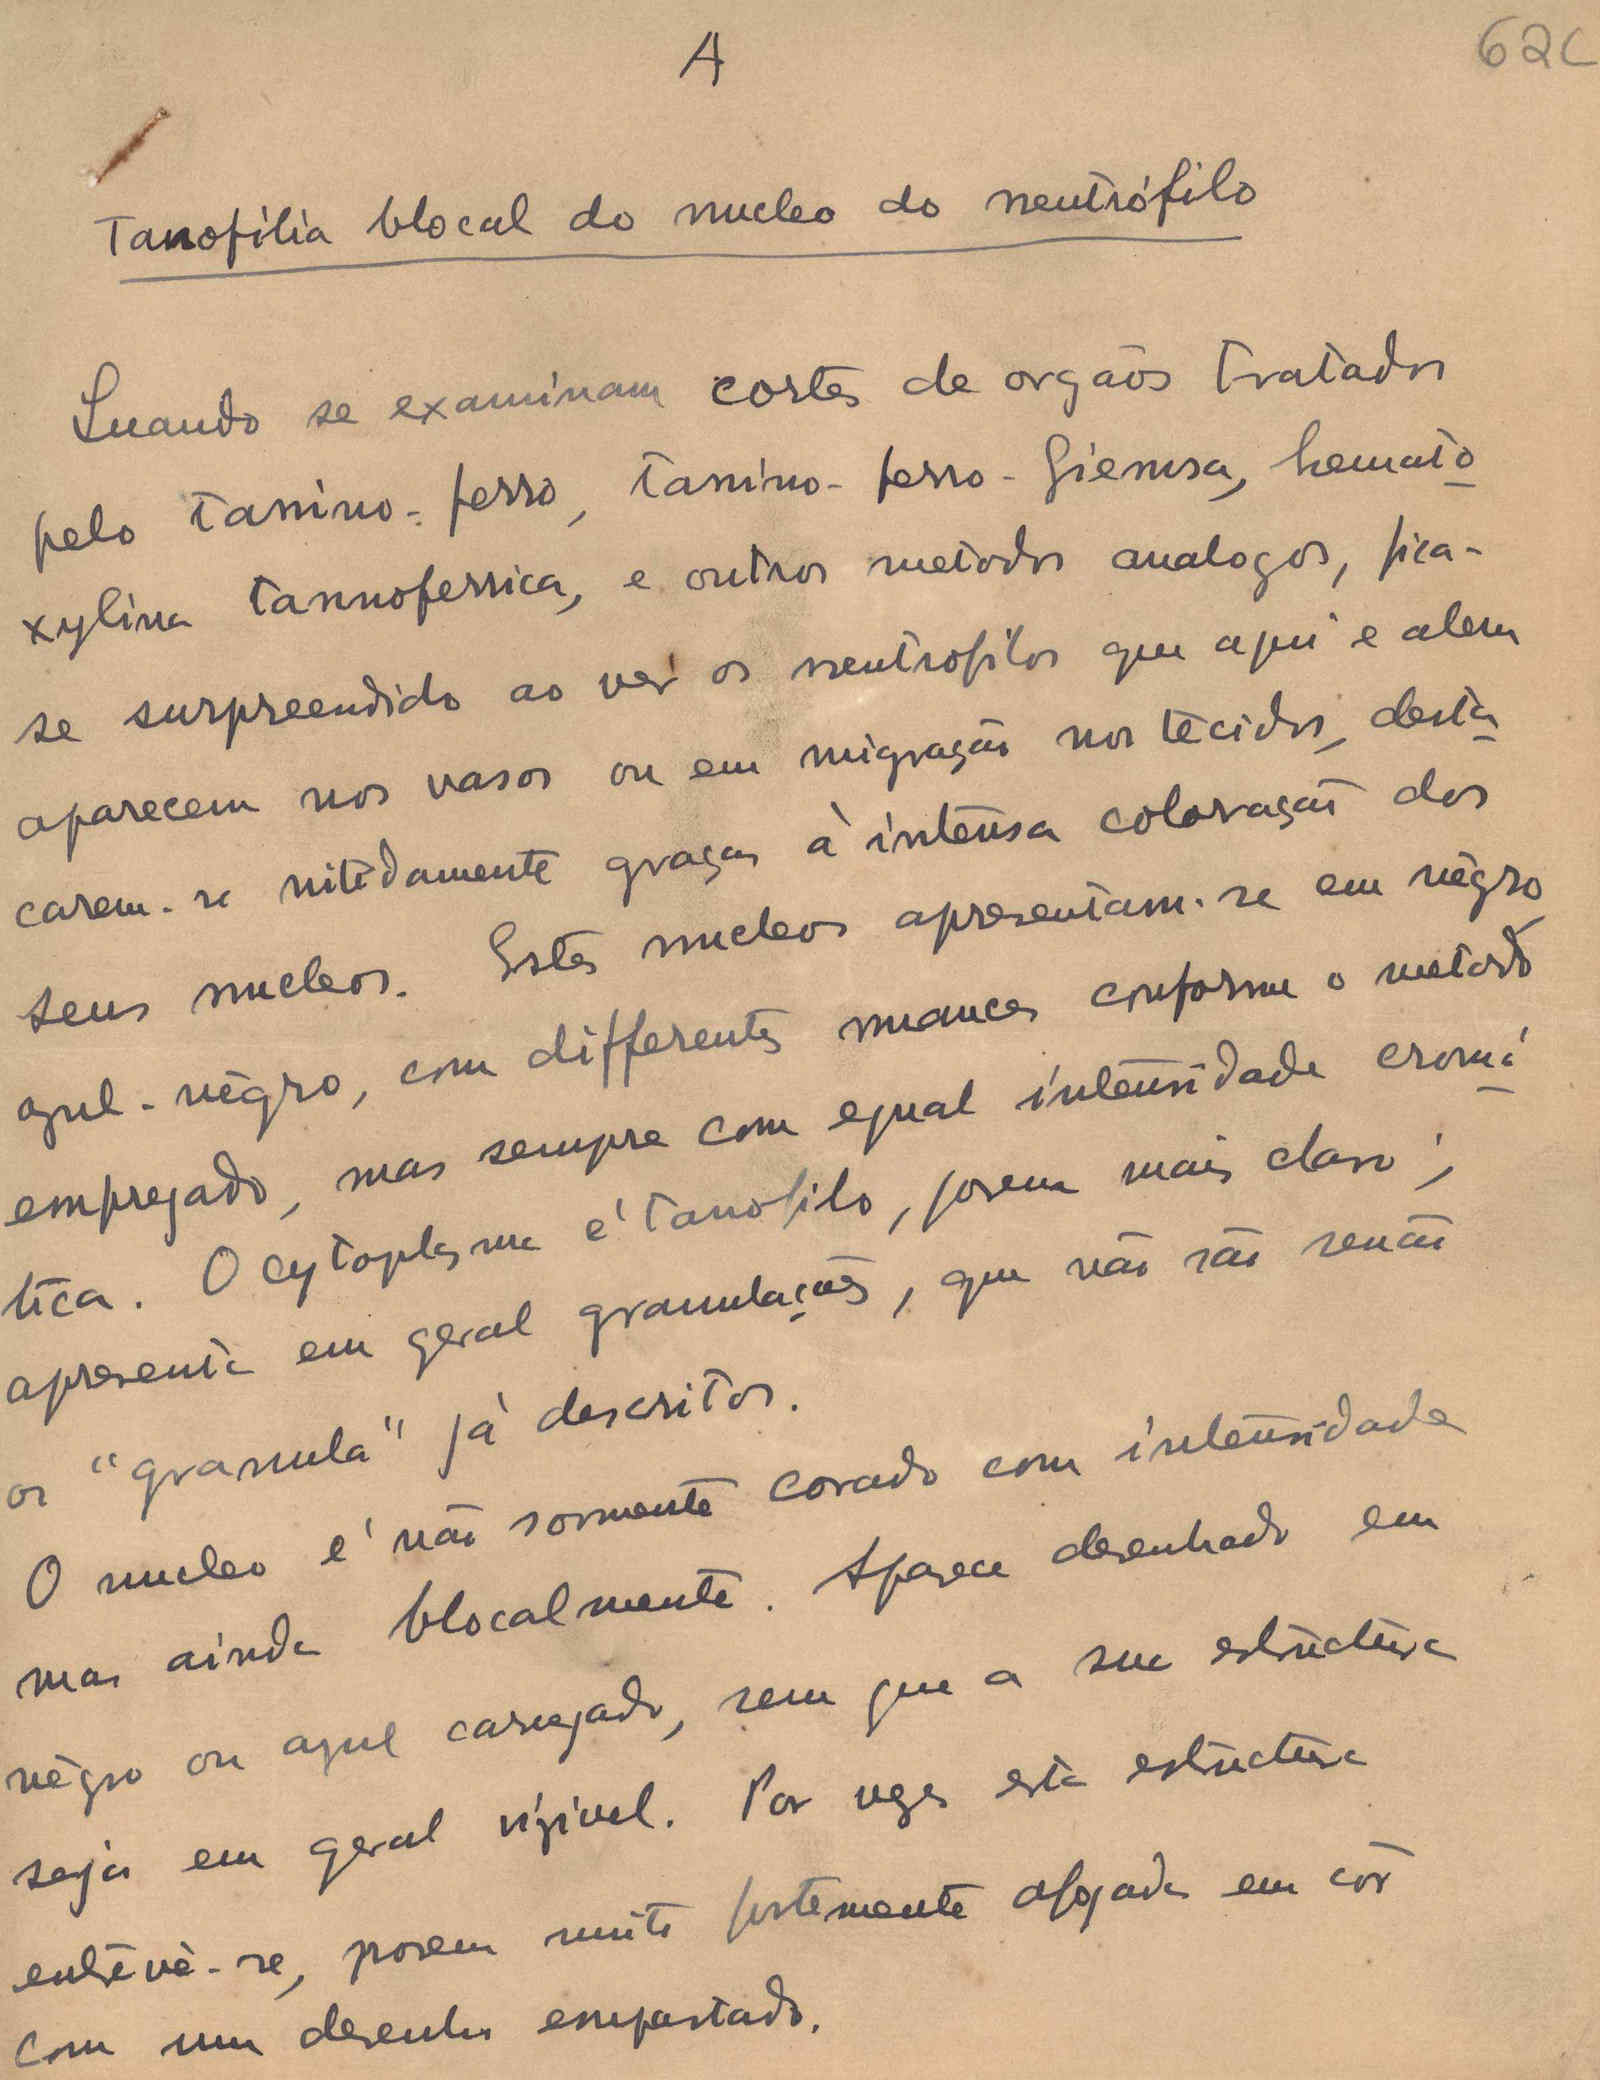 A
62C
Tanofilia blocal do nucleo do neutrófilo
Quando se examinam cortes de orgãos tratados
pelo tanino-ferro, tanino-ferro-Giemsa, hemato
xylina tannoferrica, e outros metodos analogos, fica-
se surpreendido ao ver os neutrofilos que aqui e alem
aparecem nos vasos ou em migração nos tecidos, desta
carem-se nitidamente graças à intensa coloração dos
seus nucleos. Estes nucleos apresentam-se em negro
azul-negro, com differentes nuances conforme o metodo
empregado, mas sempre com egual intensidade cromá
tica. O cytoplasma é tanofilo, porem mais claro;
apresenta em geral granulações, que não são senão
os "granula" já descritos.
O nucleo é não sormente corado com intensidade
mas ainda blocalmente. Aparece desenhado em
negro ou azul carregado, sem que a sua estructura
seja em geral vizivel. Por vezes esta estructura
entrevê-se, porem muito fortemente afogada em côr
com um desenho empastado.